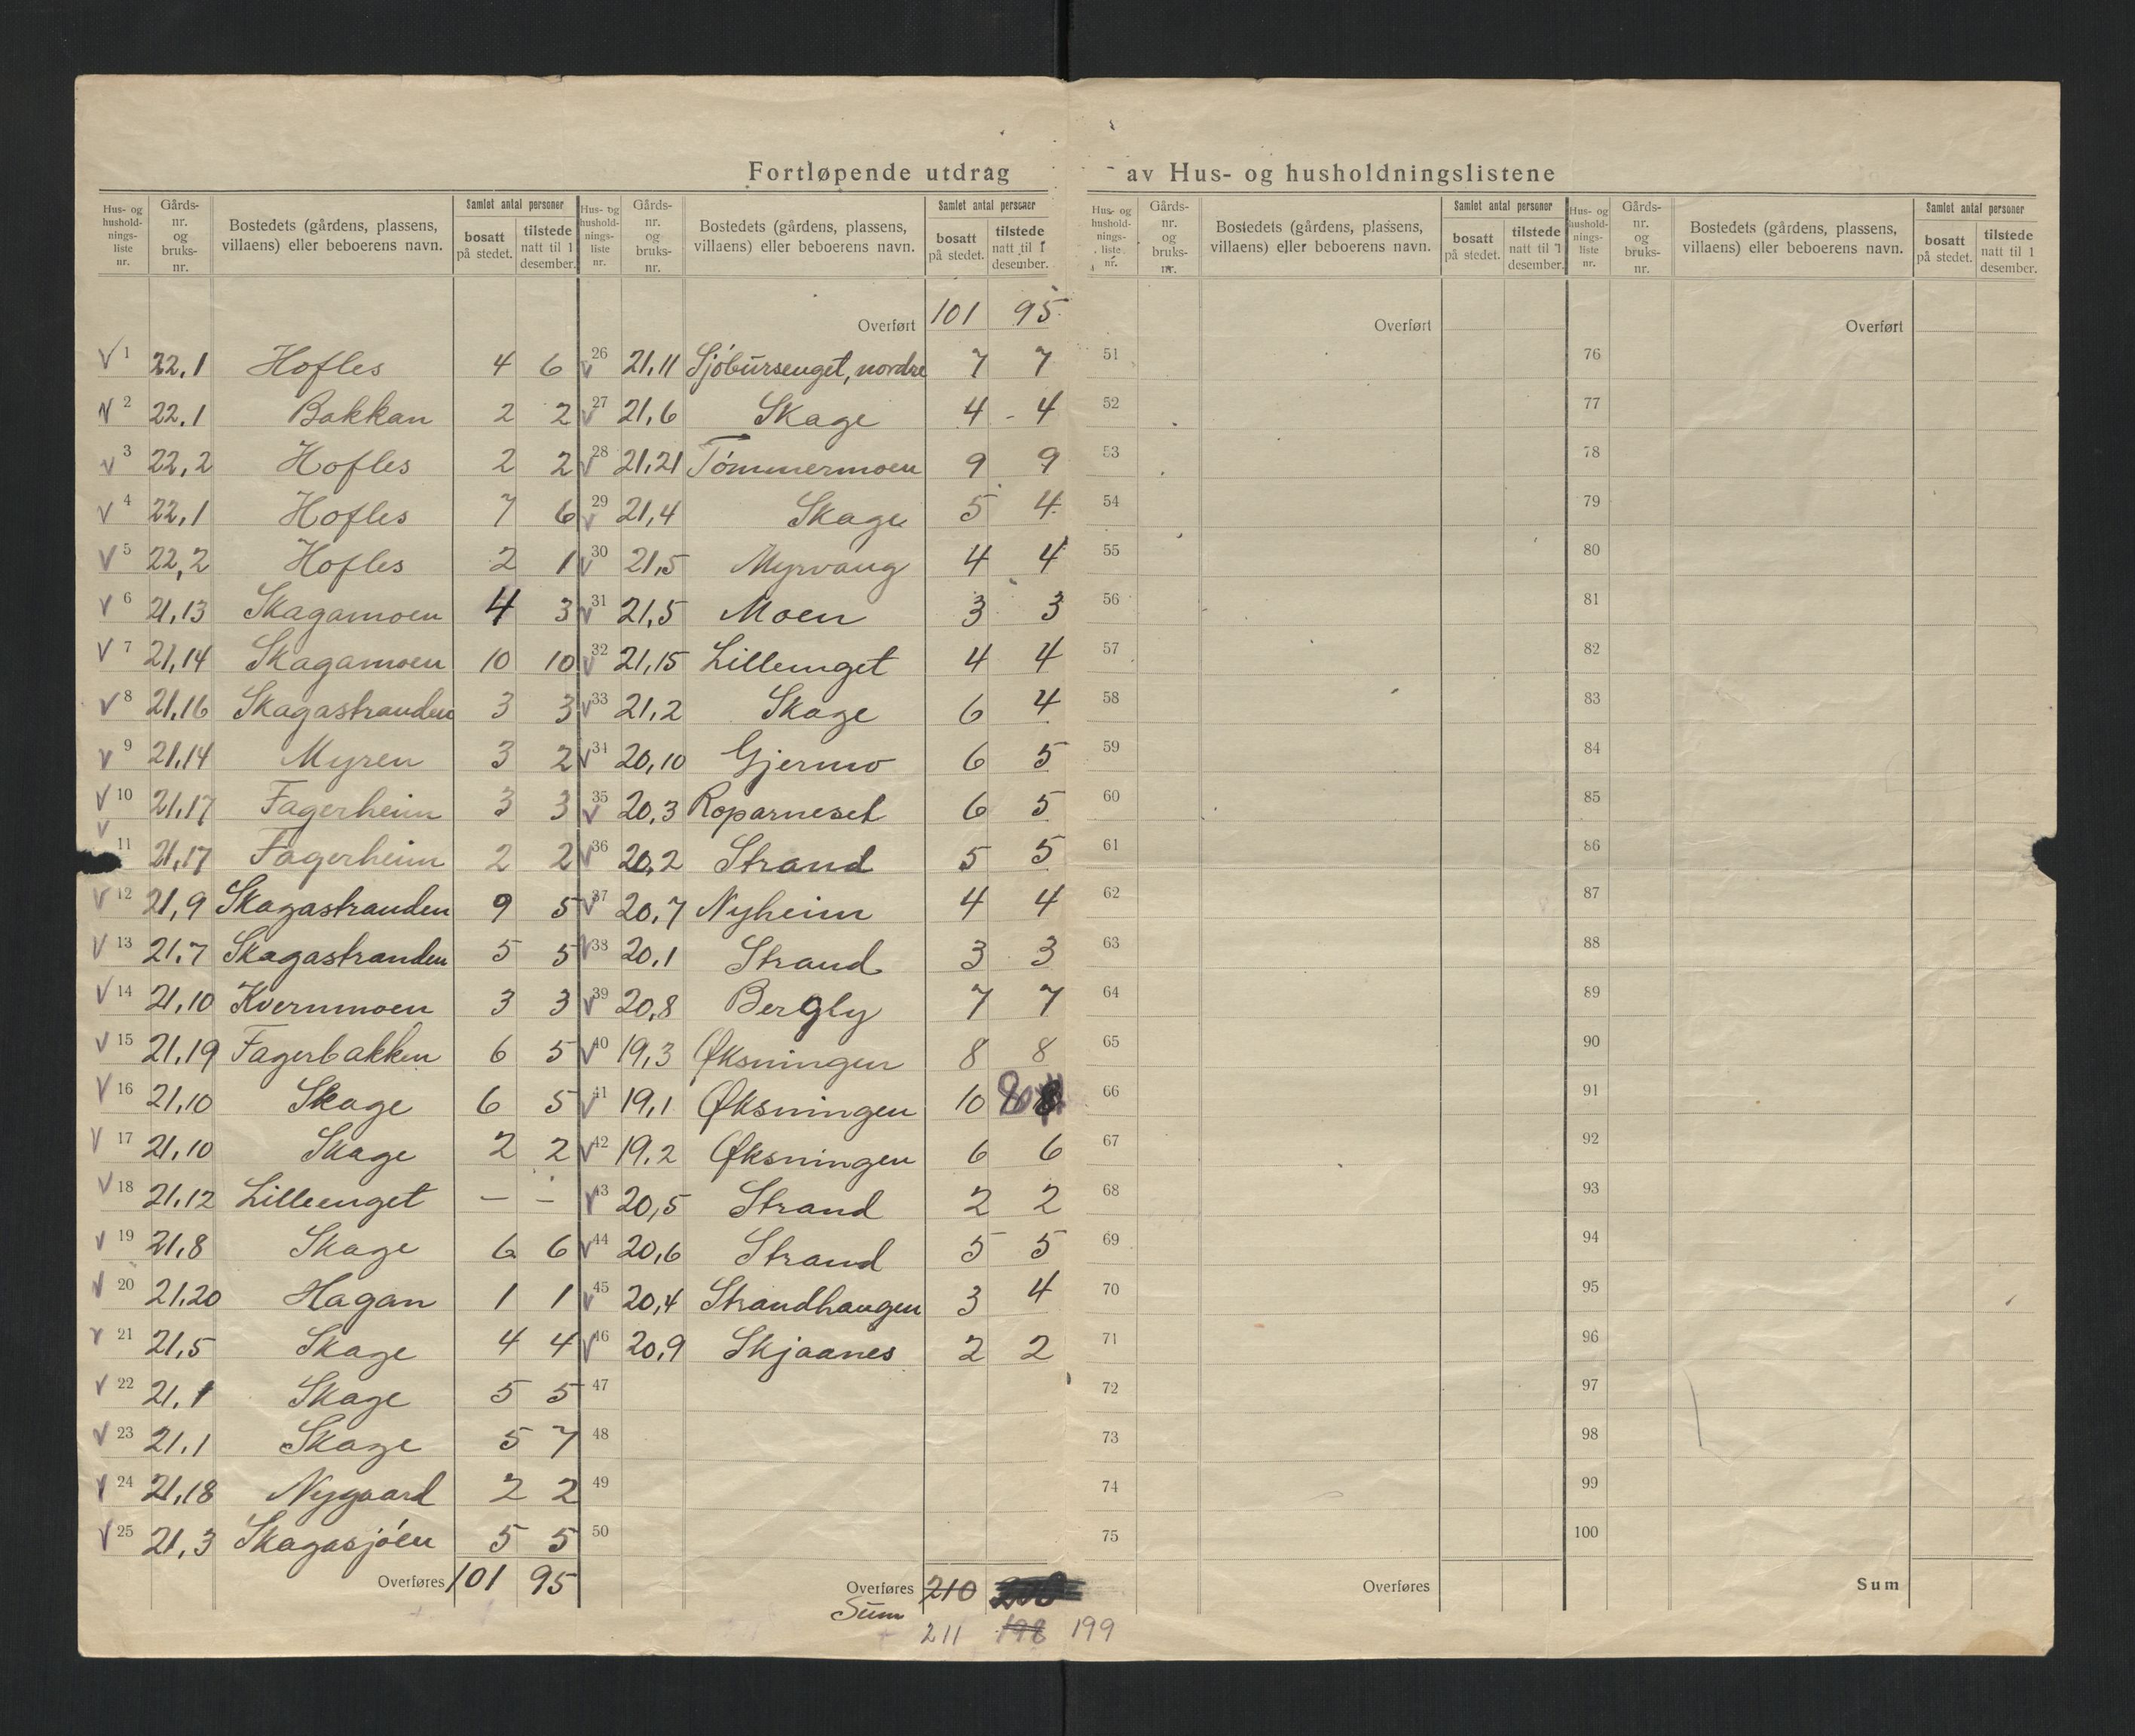 Fortløpende utdrag av Hus- og husholdningslistene
Hus- og hushold-nings-liste nr. Gårds-nr. og bruks-nr. Bostedets (gårdens, plassens, villaens) eller beboerens navn. Samlet antal personer bosatt på stedet. tilstede natt til 1 desember.
1 22,1 Hofles 4 6
2 22,1 Bakkan 2 2
3 22,2 Hofles 2 2
4 22,1 Hofles 7 6
5 22,2 Hofles 2 1
6 21,13 Skagamoen 4 3
7 21,14 Skagamoen 10 10
8 21,16 Skagastranden 3 3
9 21,14 Myren 3 2
10 21,17 Fagerheim 3 3
11 21,17 Fagerheim 2 2
12 21,9 Skagastranden 9 5
13 21,7 Skagastranden 5 5
14 21,10 Kvernmoen 3 3
15 21,19 Fagerbakken 6 5
16 21,10 Skage 6 5
17 21,10 Skage 2 2
18 21,12 Lilleenget — —
19 21,8 Skage 6 6
20 21,20 Hagan 1 1
21 21,5 Skage 4 4
22 21,1 Skage 5 5
23 21,1 Skage 5 7
24 21,18 Nygaard 2 2
25 21,3 Skagasjóen 5 5
Overføres 101 95
Hus- og hushold-nings-liste nr. Gårds-nr. og bruks-nr. Bostedets (gårdens, plassens, villaens) eller beboerens navn. Samlet antal personer bosatt på stedet. tilstede natt til 1 desember.
Overført 101 95
26 21,11 Sjóbursenget, nordre 7 7
27 21,6 Skage 4 - 4
28 21,21 Tómmermoen 9 9
29 21,4 Skage 5 4
30 21,5 Myrvang 4 4
31 21,5 Moen 3 3
32 21,15 Lillenget 4 4
33 21,2 Skage 6 4
34 20,10 Gjermo 6 5
35 20,3 Roparneset 6 5
36 20,2 Strand 5 5
37 20,7 Nyheim 4 4
38 20,1 Strand 3 3
39 20,8 Bergly 7 7
40 19,3 Øksningen 8 8
41 19,1 Øksningen 10 8
42 19,2 Øksningen 6 6
43 20,5 Strand 2 2
44 20,6 Strand 5 5
45 20,4 Strandhaugen 3 4
46 20,9 Skjaanes 2 2
47
48
49
50
Overføres 210
Sum
211 198 199
Hus- og hushold-nings-liste nr. Gårds-nr. og bruks-nr. Bostedets (gårdens, plassens, villaens) eller beboerens navn. Samlet antal personer bosatt på stedet. tilstede natt til 1 desember.
Overført
51
52
53
54
55
56
57
58
59
60
61
62
63
64
65
66
67
68
69
70
71
72
73
74
75
Overføres
Hus- og hushold-nings-liste nr. Gårds-nr. og bruks-nr. Bostedets (gårdens, plassens, villaens) eller beboerens navn. Samlet antal personer bosatt på stedet. tilstede natt til 1 desember.
Overført
76
77
78
79
80
81
82
83
84
85
86
87
88
89
90
91
92
93
94
95
96
97
98
99
100
Sum